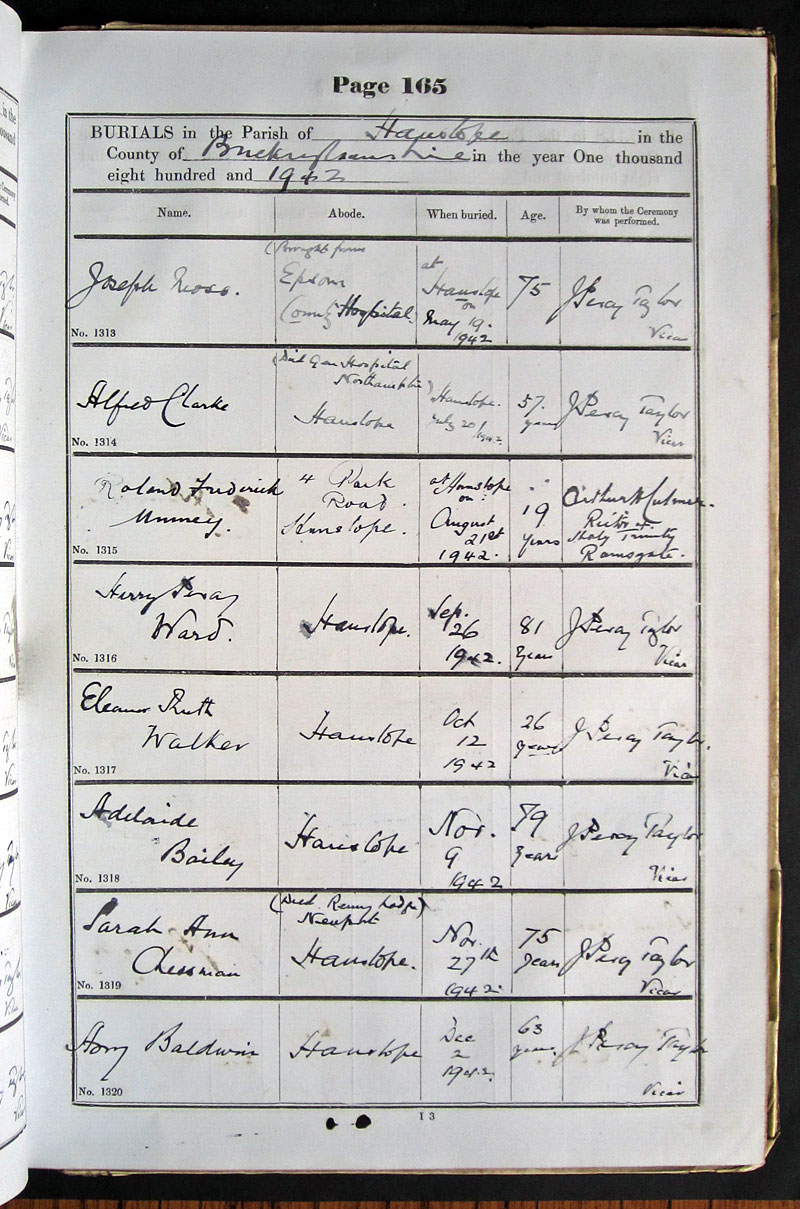 Page 165
BURIALS in the Parish of Hanslope in the
County of Buckinghamshire in the year One thousand
eight hundred and 1942
Name. Abode. When buried. Age. By whom the Ceremony
was performed.
(Brought from
Joseph Moss. Epsom at Hanslope 75 J Percy Taylor
County Hospital) on May 19. Vicar
1942
No. 1313
(Died Gen Hospital
Northampton)
Alfred Clarke Hanslope Hanslope. 57. J Percy Taylor
July 20/1942. years Vicar
No. 1314
Roland Frederick 4 Park at Hanslope 19 Arthur
Road on: years Rector of
Hanslope. August Holy Trinity
21st Ramsgate.
1942.
No. 1315
Harry Percy Sep. 81 J Percy Taylor
Ward. Hanslope. 26 Years Vicar
1942.
No. 1316
Eleanor Ruth Oct 26
Walker Hanslope 12 years J Percy Taylor.
1942 Vicar
No. 1317
Adelaide Nov. 79
Bailey Hanslope 9 Years J Percy Taylor
1942 Vicar
No. 1318
(Died Renny Lodge)
Newport
Sarah Ann Nov. 75 J Percy Taylor
Chessman Hanslope. 27th Years Vicar
1942
No. 1319
Baldwin Hanslope Dec 63 J Percy Taylor
2 years.
1942. Vicar
No. 1320
I 3